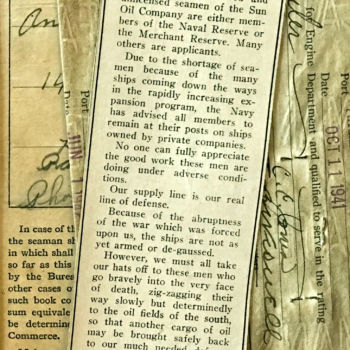 unlicensed seamen of the Sun
Oil Company are either mem-
bers of the Naval Reserve or
the Merchant Reserve. Many
others are applicants.
Due to the shortage of sea-
men because of the many
ships coming down the ways
in the rapidly increasing ex-
pansion program, the Navy
has advised all members to
remain at their posts on ships
owned by private companies.
No one can fully appreciate
the good work these men are
doing under adverse condi-
tions.
Our supply line is our real
line of defense.
Because of the abruptness
of the war which was forced
upon us, the ships are not as
yet armed or de-gaussed.
However, we must all take
our hats off to these men who
go bravely into the very face
of death, zig-zagging their
way slowly but determinedly
to the oil fields of the south,
so that another cargo of oil
may be brought safely back
to our much needed
In case of th
the seaman sh
in which shall
so far as this
by the Burea
other cases o
such book co
sum equivale
be determine
Commerce.
Port
JUN 1
Port
for Engine
Department and qualified to serve in the rating
Date
OCT 11 1941
Port